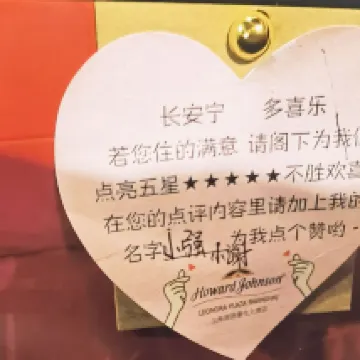 长安宁 多喜乐
若您住的满意 请阁下为我们
点亮五星★★★★★不胜欢喜
在您的点评内容里请加上我的
名字小强 为我点个赞哟~
Howard Johnson
LEONORA PLAZA SHANGHAI